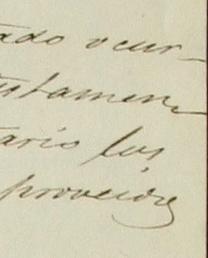 ado ocur-
stamen
tario los
proveida